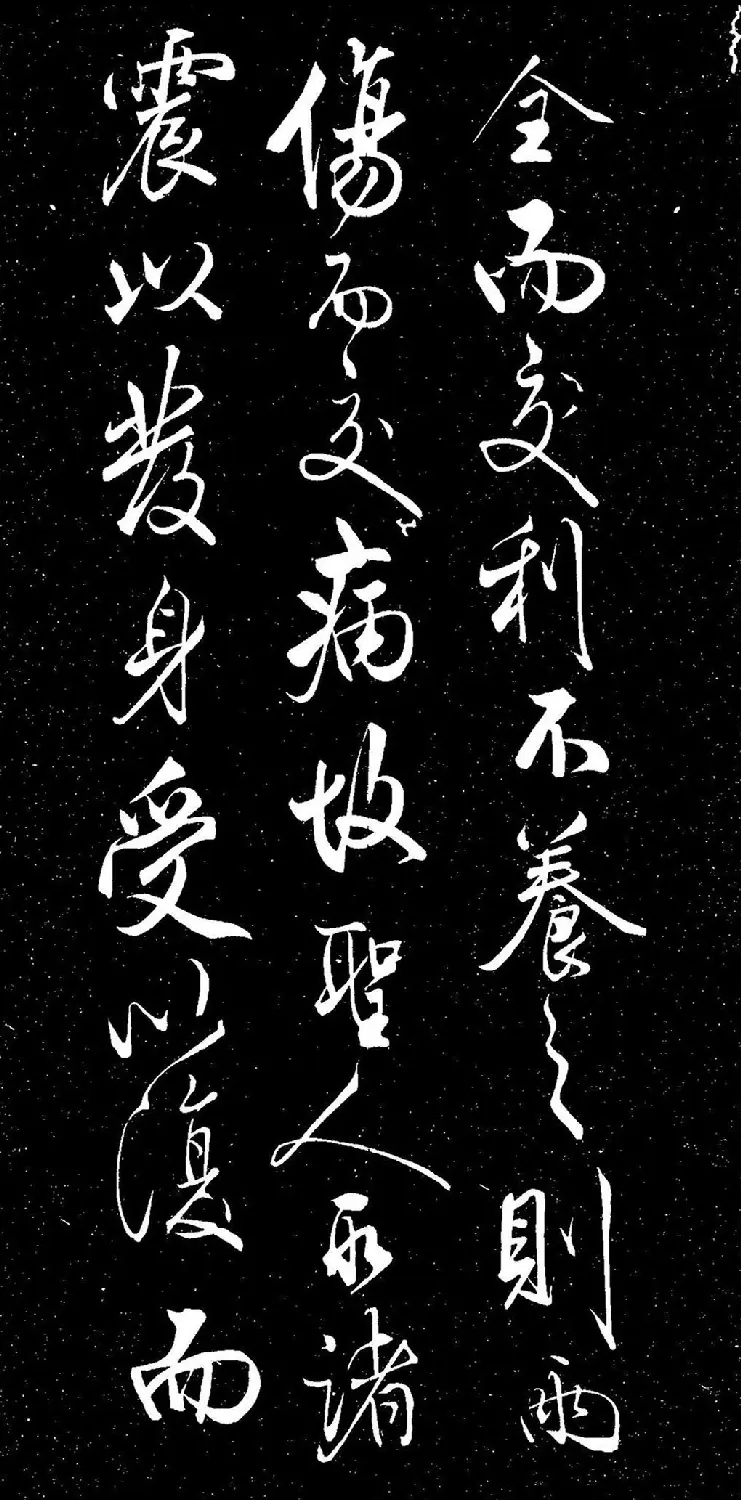 全而交利不養之則兩
傷而交病故聖人取諸
震以發身受以復而